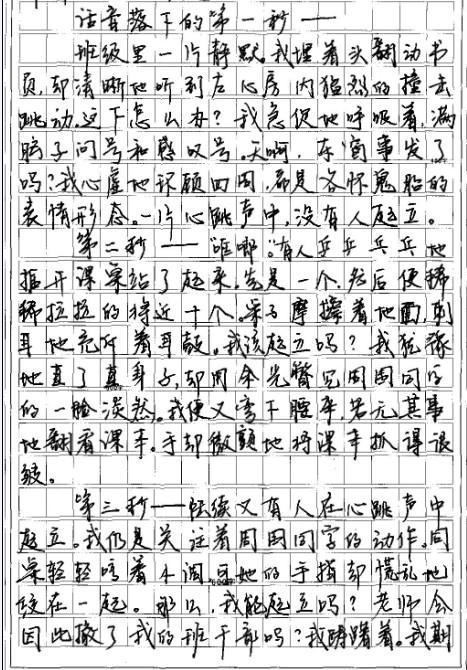 话音落下的第一秒——
班级里一片静默。我埋着头翻动书
页,却清晰地听到左心房内猛烈的撞击
跳动。这下怎么办?我急促地呼吸着,满
脑子问号和感叹号。天啊,东窗事发了
吗?我心虚地环顾四周,都是各怀鬼胎的
表情形态。一片心跳声中,没有人起立。
第二秒——"哐啷"有人乒乒乓乓地
拒开课桌站了起来。先是一个,然后便稀
稀拉拉的将近十个。桌子摩擦着地面,刺
耳地充斥着耳鼓。我该起立吗?我犹豫
地直了直身子,却用余光瞥见周围同学
的一脸淡然。我便又弯下腰来,若无其事
地翻看课本。手却微颤地将课本抓得很
皱。
第三秒——陆续又有人在心跳声中
起立。我仍是关注着周围同学的动作。同
桌轻轻哼着小调,可她的手指却慌乱地
绞在一起。那么,我能起立吗?老师会
因此撤了我的班干部吗?我踌躇着。我期